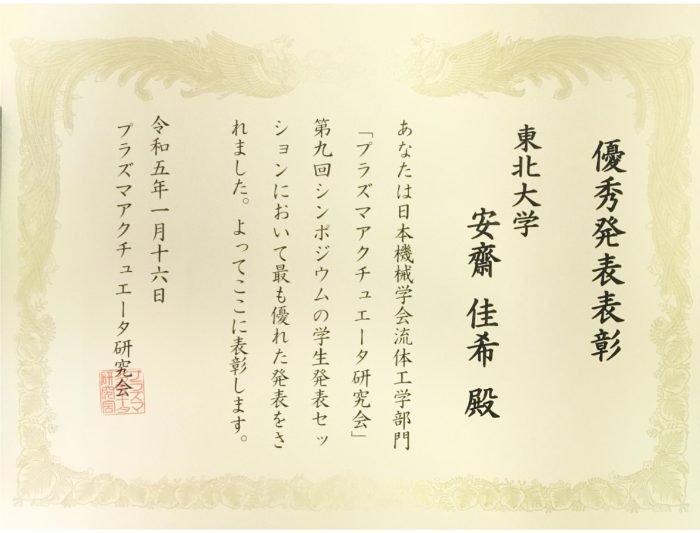 優秀発表表彰
東北大学
安齋 佳希 殿
あなたは日本機械学会流体工学部門
「プラズマアクチュエータ研究会」
第九回シンポジウムの学生発表セッ
ションにおいて最も優れた発表をさ
れました。よってここに表彰します。
令和五年一月十六日
プラズマアクチュエータ研究会